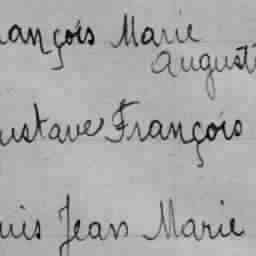 rançois Marie
Augusti
ustave François
uis Jean Marie